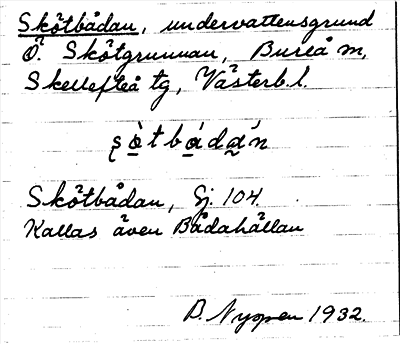 Skötbådan, undervattensgrund
Ö. Skötgrunnan, Bureå m,
Skellefteå tg, Västerb. l.
Skötbådan, Sj. 104.
Kallas även Bådahällan
B. Nyspen 1932.